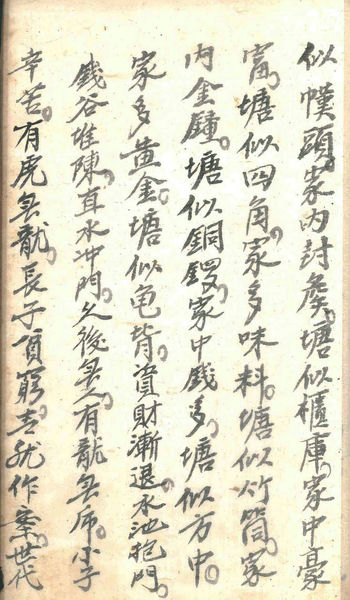 似幞頭。家內封矦。塘似櫃庫。家中豪
富。塘似四角。家多味料。塘似竹筒。家
內金鍾。塘似銅鑼。家中戔多。塘似方巾。
家多黃金。塘似龟背。資財漸退。水池抱門。
錢谷堆陳。直水冲門。久後無人。有龍無虎。小子
辛苦。有虎無龍。長子貧窮。青龍作案。世代